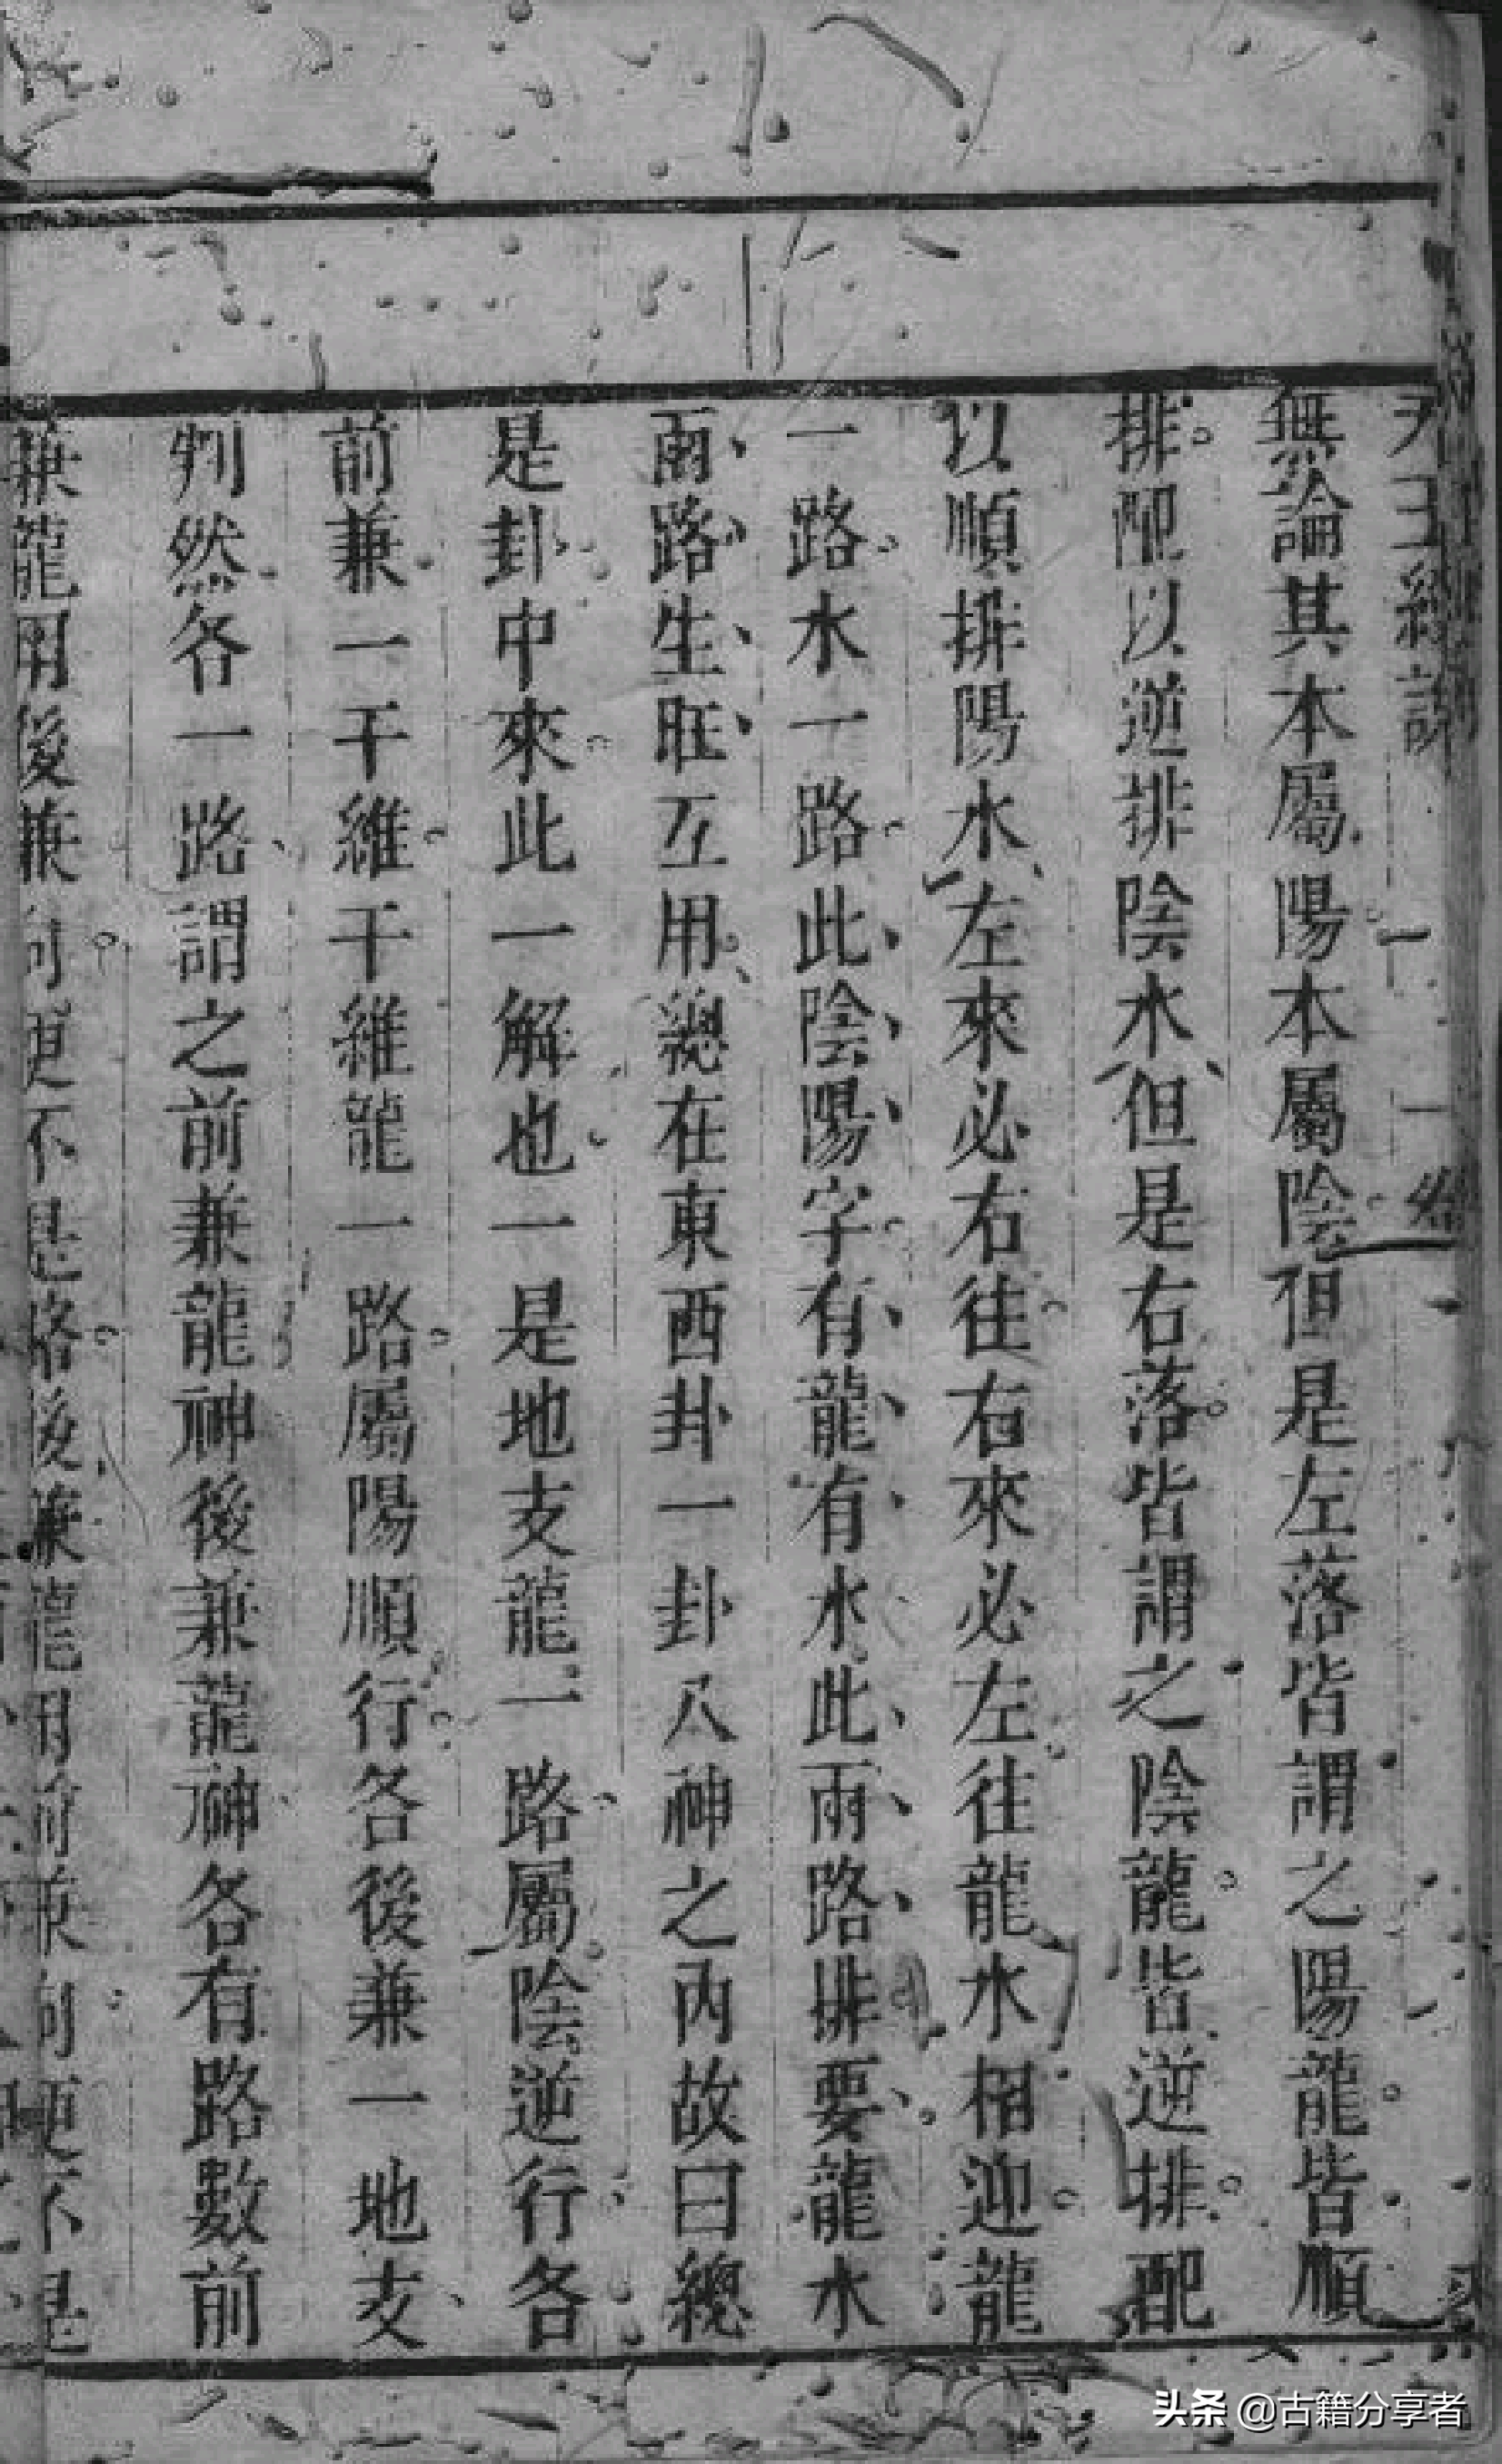 天玉經說 卷
無論其本屬陽本屬陰但是左落皆謂之陽龍皆順
排配以逆排陰水但是右落皆謂之陰龍皆逆排配
以順排陽水左來必右往右來必左往龍水相迎龍
一路水一路此陰陽字有龍有水此兩路排要龍水
兩路生旺互用總在東西卦一卦八神之內故曰總
是卦中來此一解也一是地支龍一路屬陰逆行各
前兼一干維干維龍一路屬陽順行各後兼一地支
判然各一路謂之前兼龍神後兼龍神各有路數前
兼龍用後兼向更不是路後兼龍用前兼向更不是
头条 @古籍分享者